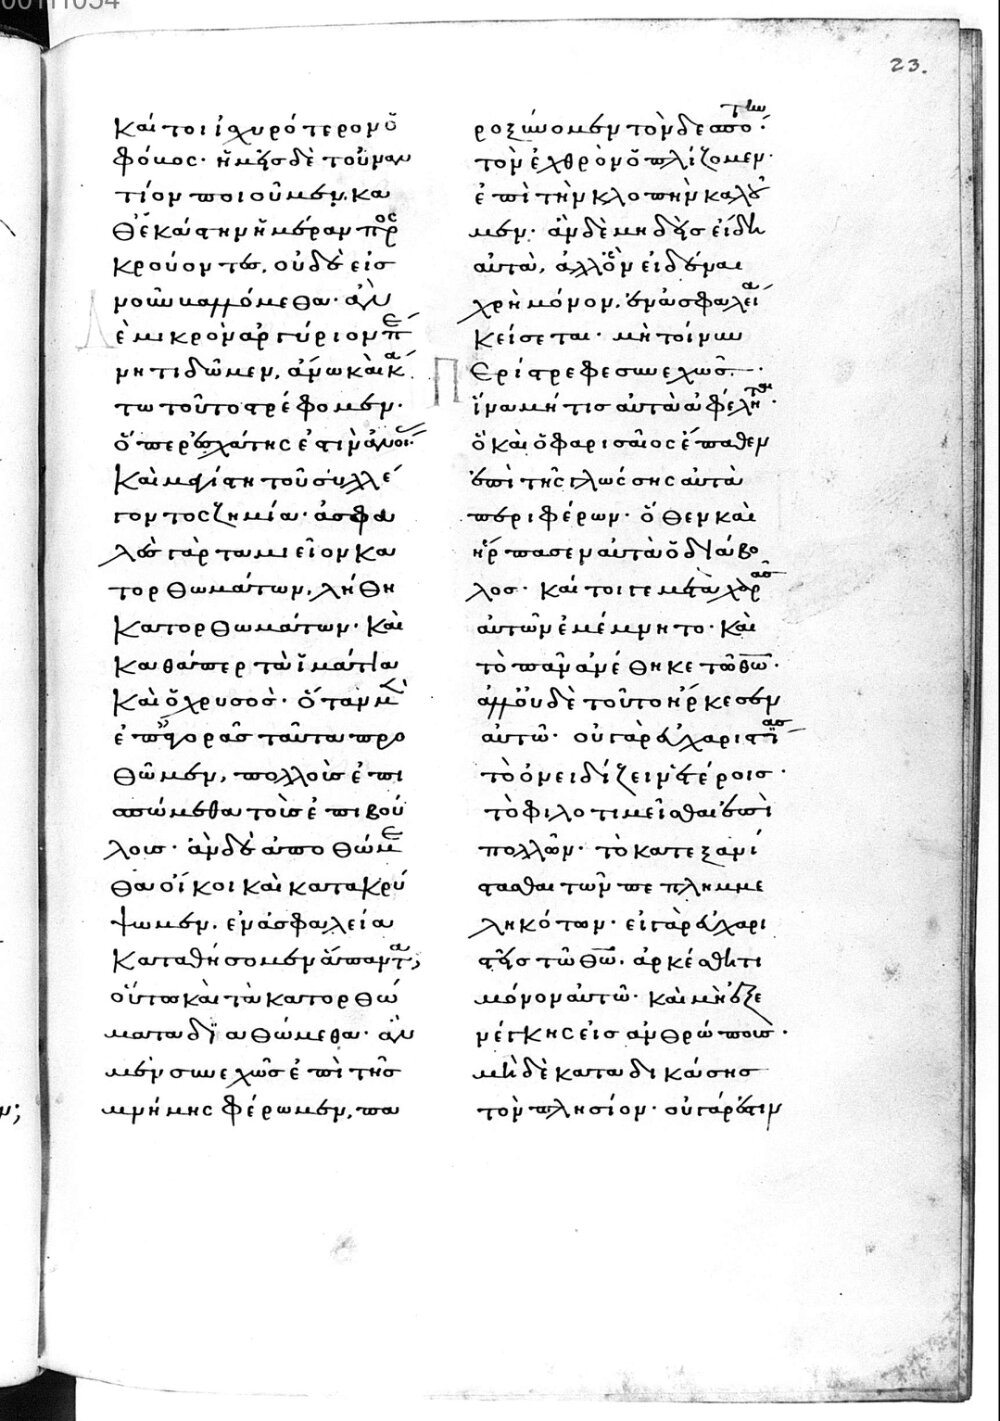 23.
καί τοι ἰσχυρότερον ὁ
φόνος· ἡμεῖς δὲ τοὐναν
τίον ποιοῦμεν, κα
θ' ἑκάστην ἡμέραν προσ
κρούοντες, οὐδὲ εἰς
νοῦν βαλλόμεθα· ἀλλ'
μικρὸν ἀργύριον
μή τι δῶμεν, ἄνω καὶ κά
τω τοῦτο στρέφομεν·
ὅπερ ἐσχάτης ἐστὶν ἀνοί
καὶ μεγίστη τοῦ συλλέ
γοντος ζημία· ἀσφα
λὲς γὰρ ταμιεῖον κα
τορθωμάτων, λήθη
κατορθωμάτων· καὶ
καθάπερ τὰ ἱμάτια
καὶ ὁ χρυσός· ὅταν μὲν
ἐπ' ἀγορᾶς ταῦτα προ
θῶμεν, πολλοὺς ἐπι
σπώμεθα τοὺς ἐπιβού
λους· ἂν δὲ ἀποθώμε
θα οἴκοι καὶ κατακρύ
ψωμεν, ἐν ἀσφαλεία
καταθήσομεν ἅπαντα,
οὕτω καὶ τὰ κατορθώ
ματα διαθώμεθα· ἂν
μὲν συνεχῶς ἐπὶ τῆς
μνήμης φέρωμεν, πα
ροξύνομεν τὸν δεσπότην·
τὸν ἐχθρὸν ὁπλίζομεν·
ἐπὶ τὴν κλοπὴν καλοῦ
μεν· ἂν δὲ μηδεὶς εἰδῆ
αὐτὰ, ἀλλ' ὃν εἰδέναι
χρὴ μόνον, ἐν ἀσφαλεία
κείσεται· μὴ τοίνυν
περίστρεφε συνεχῶς
ἵνα μή τις αὐτὰ ἀφέληται·
ὃ καὶ ὁ φαρισαῖος ἔπαθεν
ἐπὶ τῆς γλώσσης αὐτὰ
περιφέρων· ὅθεν καὶ
ἥρπασεν αὐτὰ ὁ διάβο
λος· καί τοι γε μετὰ χάριτος
αὐτῶν ἐμέμνητο· καὶ
τὸ πᾶν ἀνέθηκε τῶ θω·
ἀλλ' οὐδὲ τοῦτο ἤρκεσεν
αὐτῶ· οὐ γὰρ εὐχαριστίας
τὸ ὀνειδίζειν ἑτέροις·
τὸ φιλοτιμεῖσθαι ἐπὶ
πολλῶν· τὸ κατεξανί
στασθαι τῶν πεπλημμε
ληκότων· εἰ γὰρ εὐχαρι
στεῖς τῶ θω, ἀρκέσθητι
μόνον αὐτῶ· καὶ μὴ ἐξε
νέγκης εἰς ἀνθρώπους·
μὴ δὲ καταδικάσης
τὸν πλησίον· οὐ γάρ ἐστιν